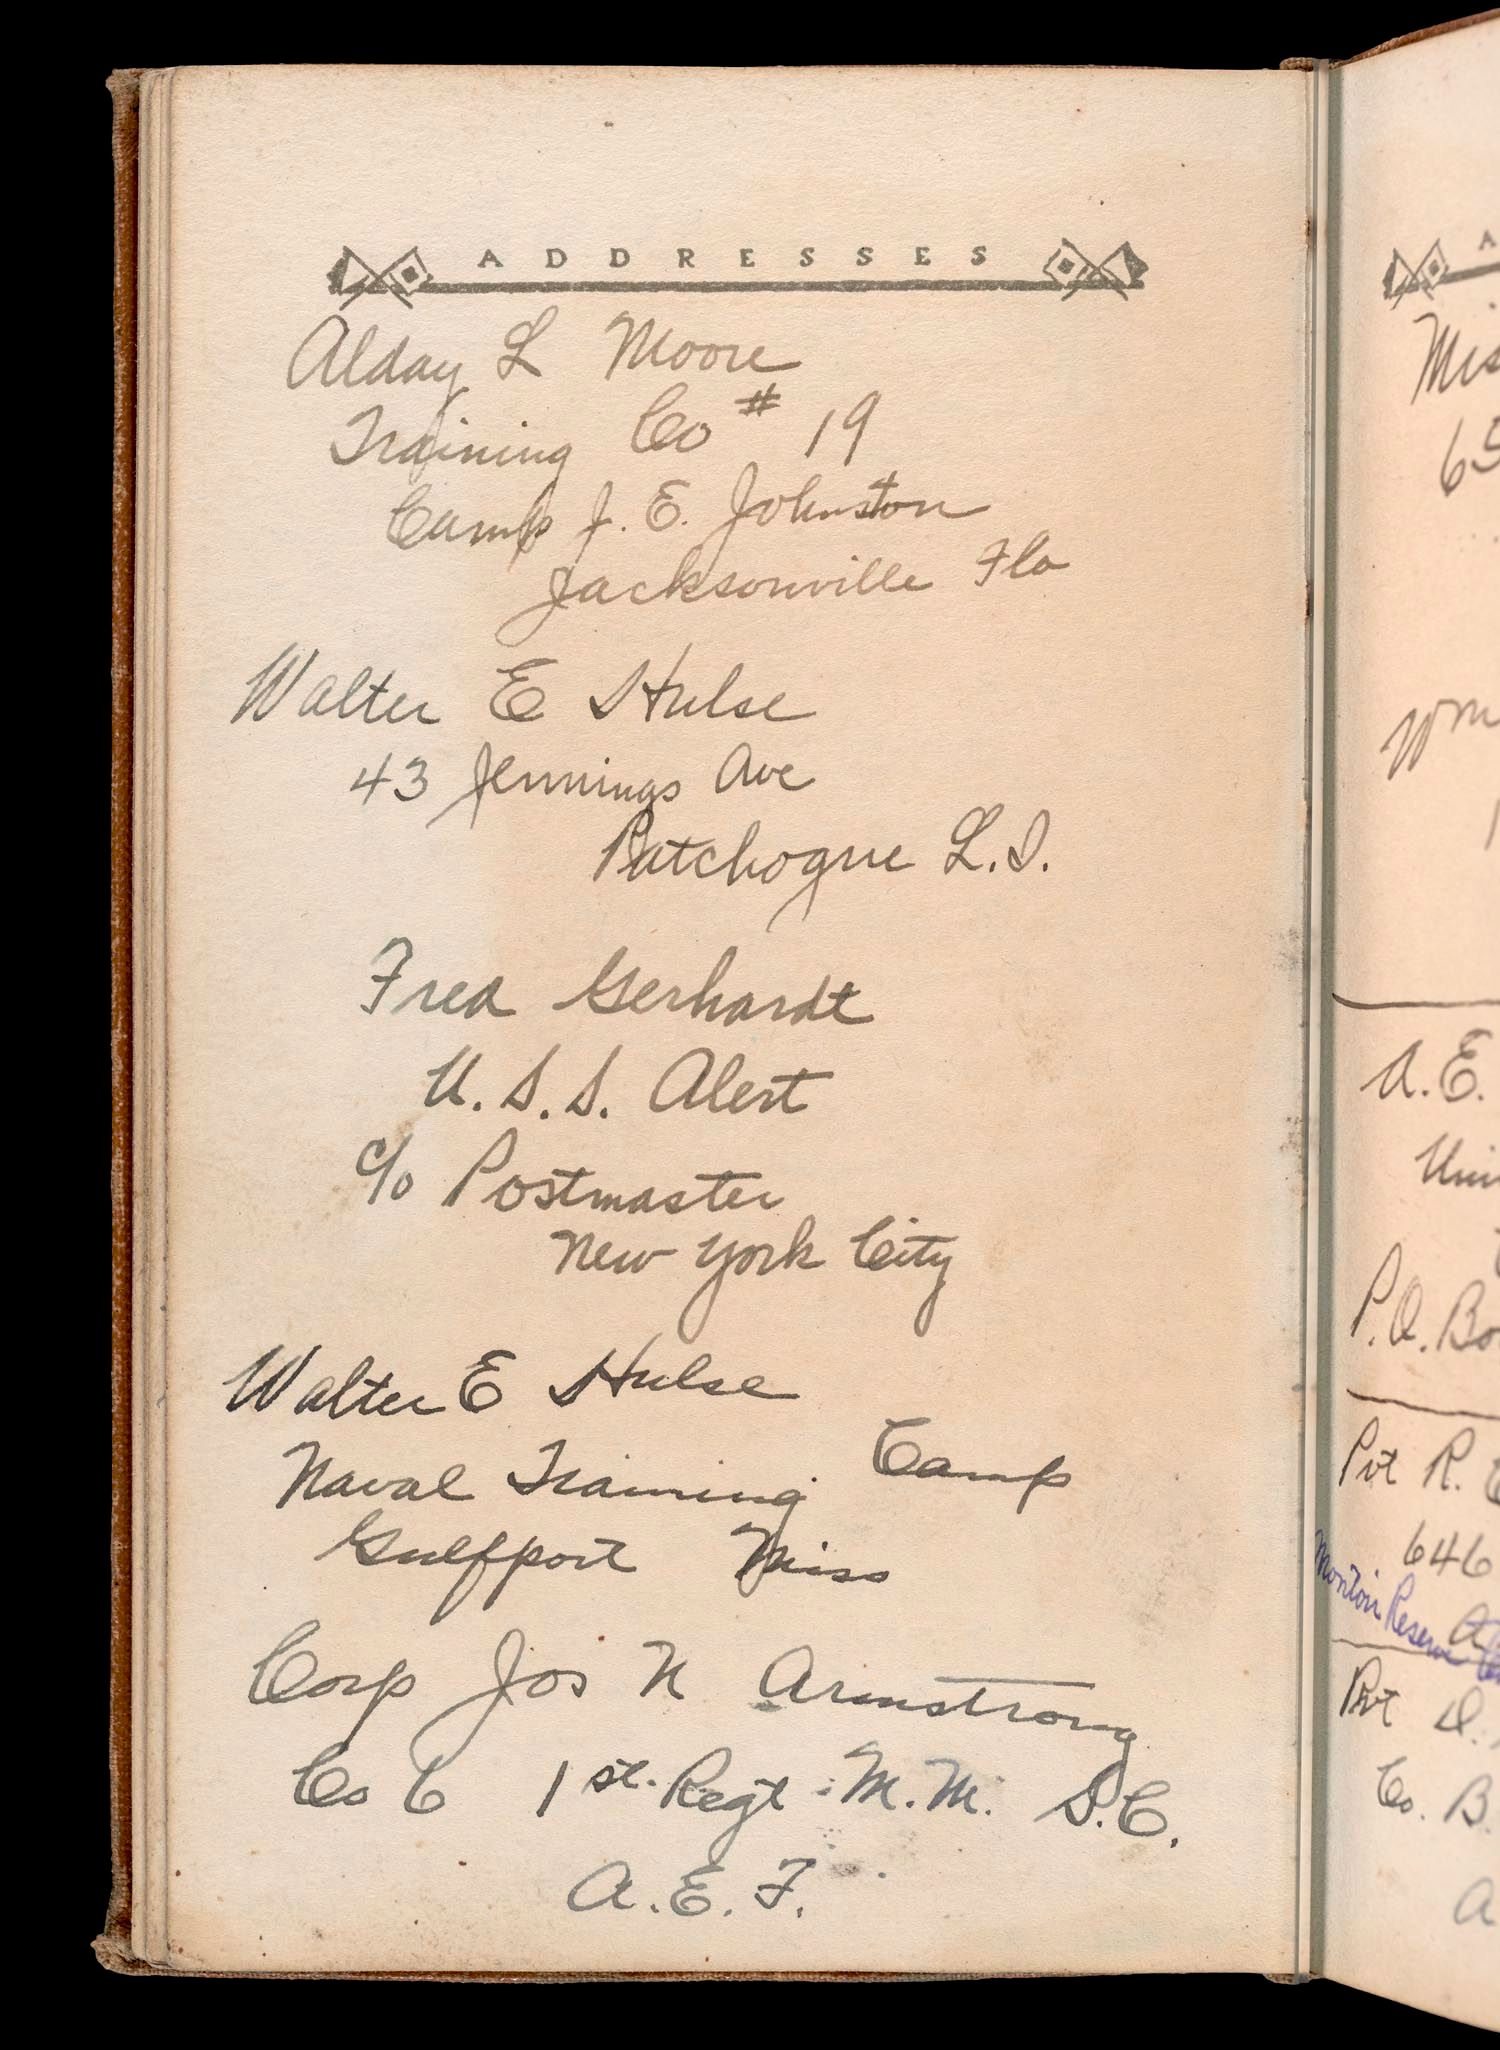 ADDRESSES
Alday L Moore
Training Co # 19
Camp J. E. Johnston
Jacksonville Fla
Walter E Hulse
43 Jennings Ave
Patchogue L.I.
Fred Gerhardt
U.S.S. Alert
c/o Postmaster
New York City
Walter E Hulse
Naval Training Camp
Gulfport Miss
Corp Jos N Armstrong
Co C 1st. Regt. M.M. S.C.
A.E.F.
A
Mis
65
Wm
A.E.
P.O. Bo
Pvt R.
646
Montoir Reserve
Pvt D.
Co. B.
A